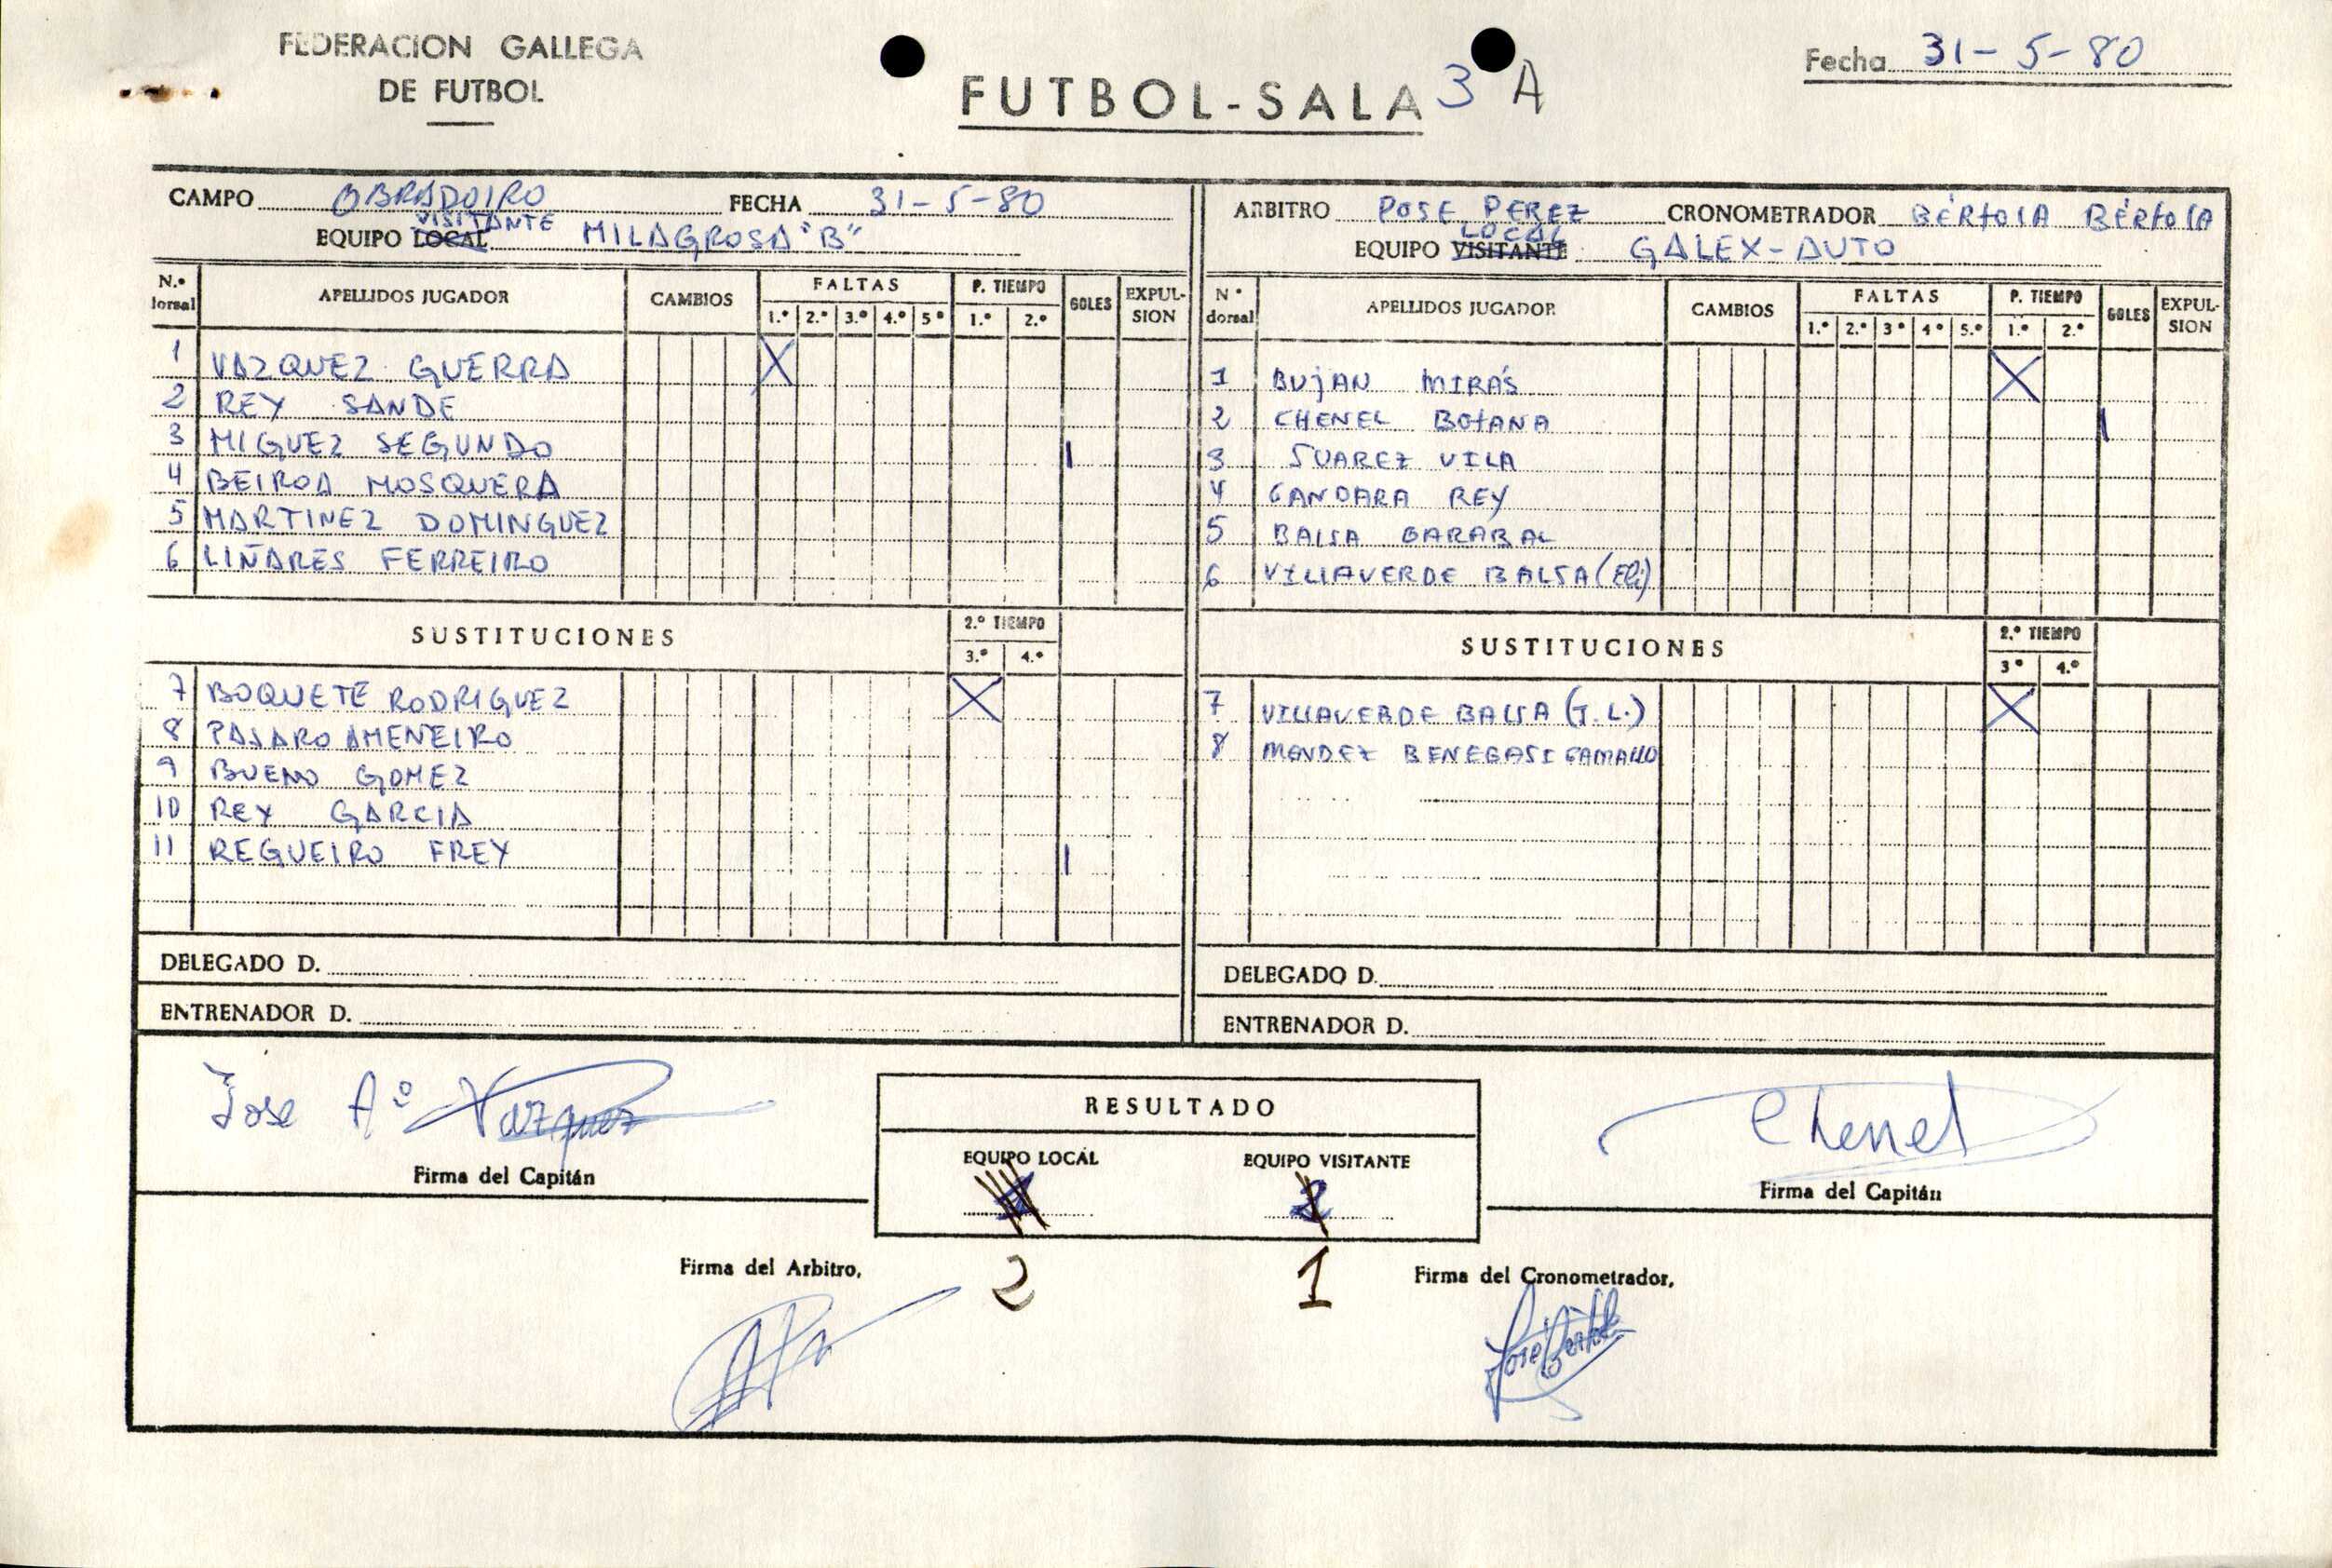 FEDERACION GALLEGA
DE FUTBOL
FUTBOL-SALA 3 A
Fecha 31-5-80
CAMPO OBRADOIRO FECHA 31-5-80
EQUIPO LOCAL VISITANTE MILAGROSA "B"
N.º dorsal APELLIDOS JUGADOR CAMBIOS FALTAS 1.º 2.º 3.º 4.º 5º P. TIEMPO 1.º 2.º GOLES EXPUL-SION
1 VAZQUEZ GUERRA X
2 REY SANDE
3 MIGUEZ SEGUNDO I
4 BEIROA MOSQUERA
5 MARTINEZ DOMINGUEZ
6 LIÑARES FERREIRO
SUSTITUCIONES 2.º TIEMPO 3.º 4.º
7 BOQUETE RODRIGUEZ X
8 PASARO AMENEIRO
9 BUENO GOMEZ
10 REY GARCIA
11 REGUEIRO FREY I
DELEGADO D.
ENTRENADOR D.
ARBITRO POSE PEREZ CRONOMETRADOR BÉRTOLA BÉRTOLA
EQUIPO VISITANTE LOCAL GALEX-AUTO
Nº dorsal APELLIDOS JUGADOR CAMBIOS FALTAS 1.º 2.º 3º 4º 5.º P. TIEMPO 1.º 2.º GOLES EXPUL-SION
1 BUJAN MIRÁS X
2 CHENEL BOTANA I
3 SUAREZ VILA
4 GANDARA REY
5 BALSA GARABAL
6 VILLAVERDE BALSA (Eli)
SUSTITUCIONES 2.º TIEMPO 3º 4.º
7 VILLAVERDE BALSA (J.L.) X
8 MENDEZ BENEGASI GAMALLO
DELEGADO D.
ENTRENADOR D.
Jose Aº Vazquez
Firma del Capitán
RESULTADO
EQUIPO LOCAL EQUIPO VISITANTE
2 1
Chenel
Firma del Capitán
Firma del Arbitro,
Firma del Cronometrador,